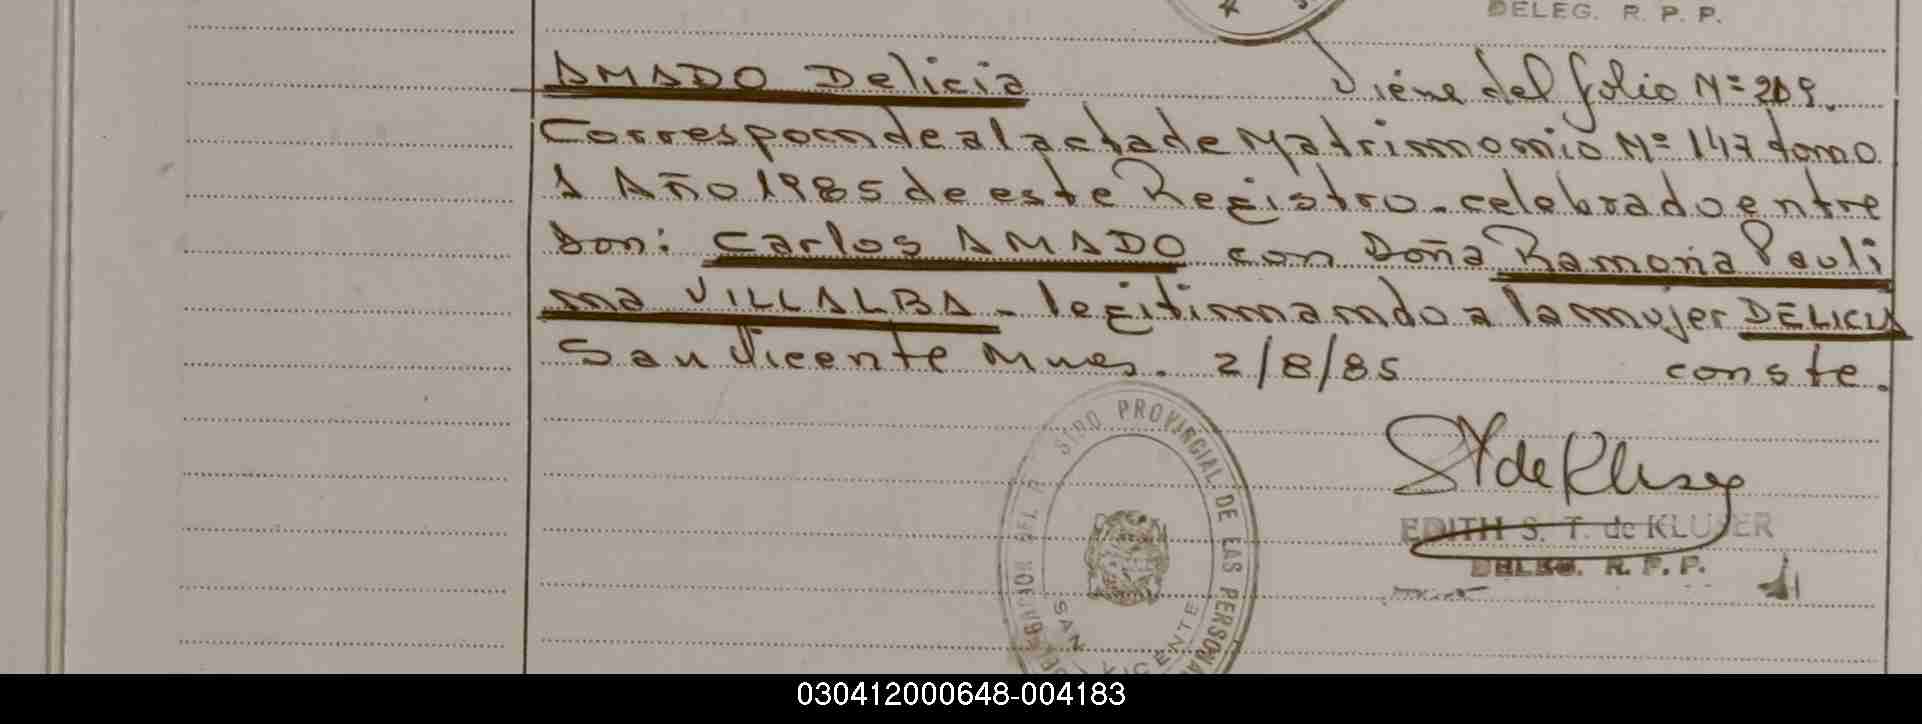 DELEG. R. P. P.
AMADO Delicia Viene del folio Nº 209.
Corresponde al acta de Matrimonio Nº 147 tomo
1 Año 1985 de este Registro. celebrado entre
Don: Carlos AMADO con Doña Ramona Pauli
na VILLALBA - legitimando a la mujer DELICIA
San Vicente Mnes. 2/8/85 conste.
STRO PROVINCIAL DE LAS PERSONA
SAN VICENTE
EDITH S. T. de KLUSER
DELEG. R. P. P.
030412000648-004183